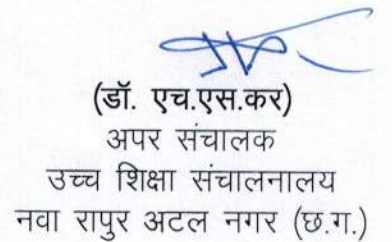 (डॉ. एच.एस.कर)
अपर संचालक
उच्च शिक्षा संचालनालय
नवा रापुर अटल नगर (छ.ग.)